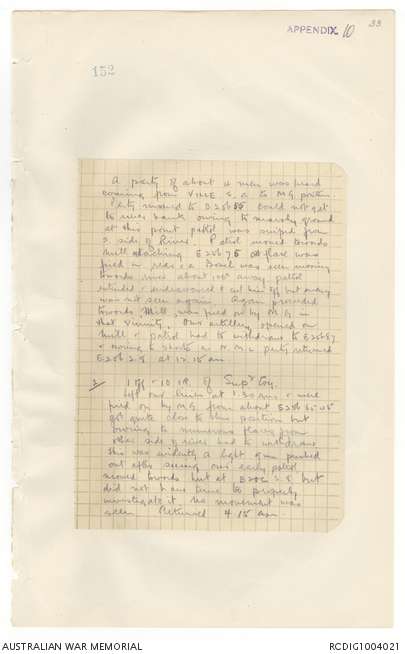 APPENDIX 10
33
152
A party of about 4 men was heard
coming from VILLE S. a to MG position
Party moved to D25b55 could not get
to river bank owing to marshy ground
at this point patrol was sniped from
S side of River. Patrol moved towards
mill reaching E25b75 a flare was
fired in side & a Bosch was seen moving
towards river about 100x away patrol
extended & endeavoured to cut him off but enemy
was not seen again. Again proceeded
towards Mill, was fired on by M.G. in
that vicinity. Our artillery opened on
Mill & patrol had to withdraw to E25b57
& owing to shorts a N.M.L. party returned
E25b28 at 12.15 am
2/ 1 Off - 10 O.R. of Supt Coy.
left our lines at 1.30 am & were
fired on by MG from about E25b65.05
got quite close to this position but
owing to numerous flares from
other side of river had to withdraw
this was evidently a light gun pushed
out after seeing our early patrol
moved towards hut at E26c 2.8 but
did not have time to properly
investigate it. No movement was
seen. Returned 4.15 am
AUSTRALIAN WAR MEMORIAL
RCDIG1004021